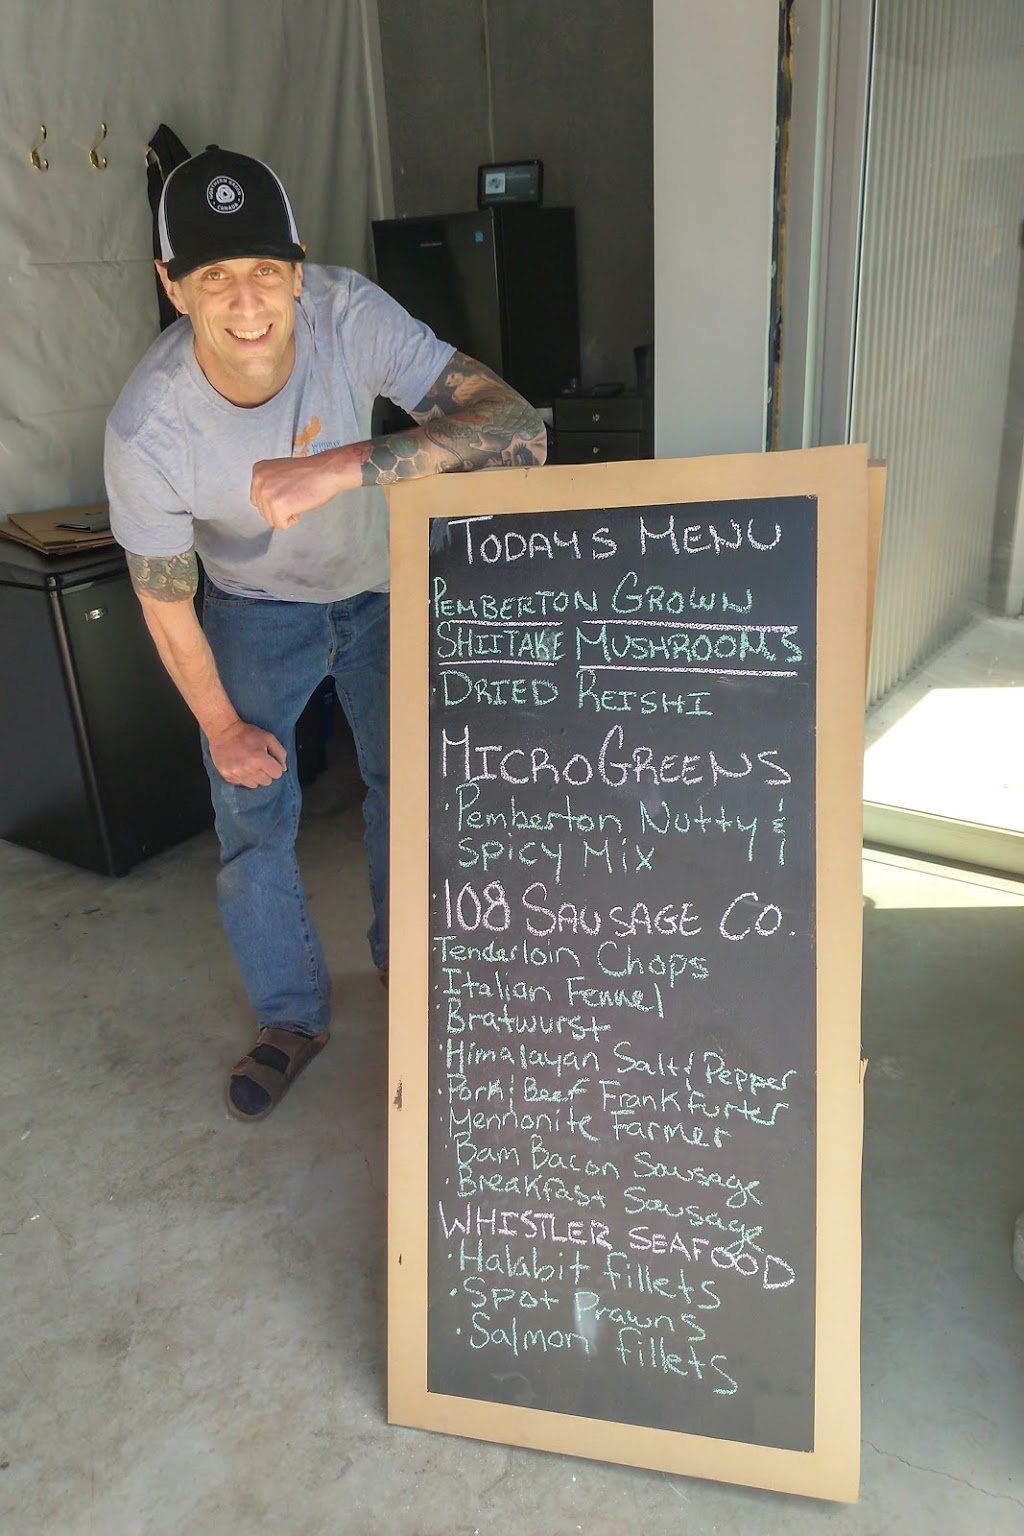 NORTHERN
CANADA
TODAYS MENU
PEMBERTON GROWN
SHIITAKE MUSHROOMS
· DRIED REISHI
MICROGREENS
· Pemberton Nutty &
spicy Mix
· 108 SAUSAGE CO.
· Tenderloin Chops
· Italian Fennel
· Bratwurst
· Himalayan Salt & Pepper
· Pork & Beef Frankfurter
· Mennonite Farmer
· Bam Bacon Sausage
· Breakfast Sausage
WHISTLER SEAFOOD
· Halabit fillets
· Spot Prawns
· Salmon fillets